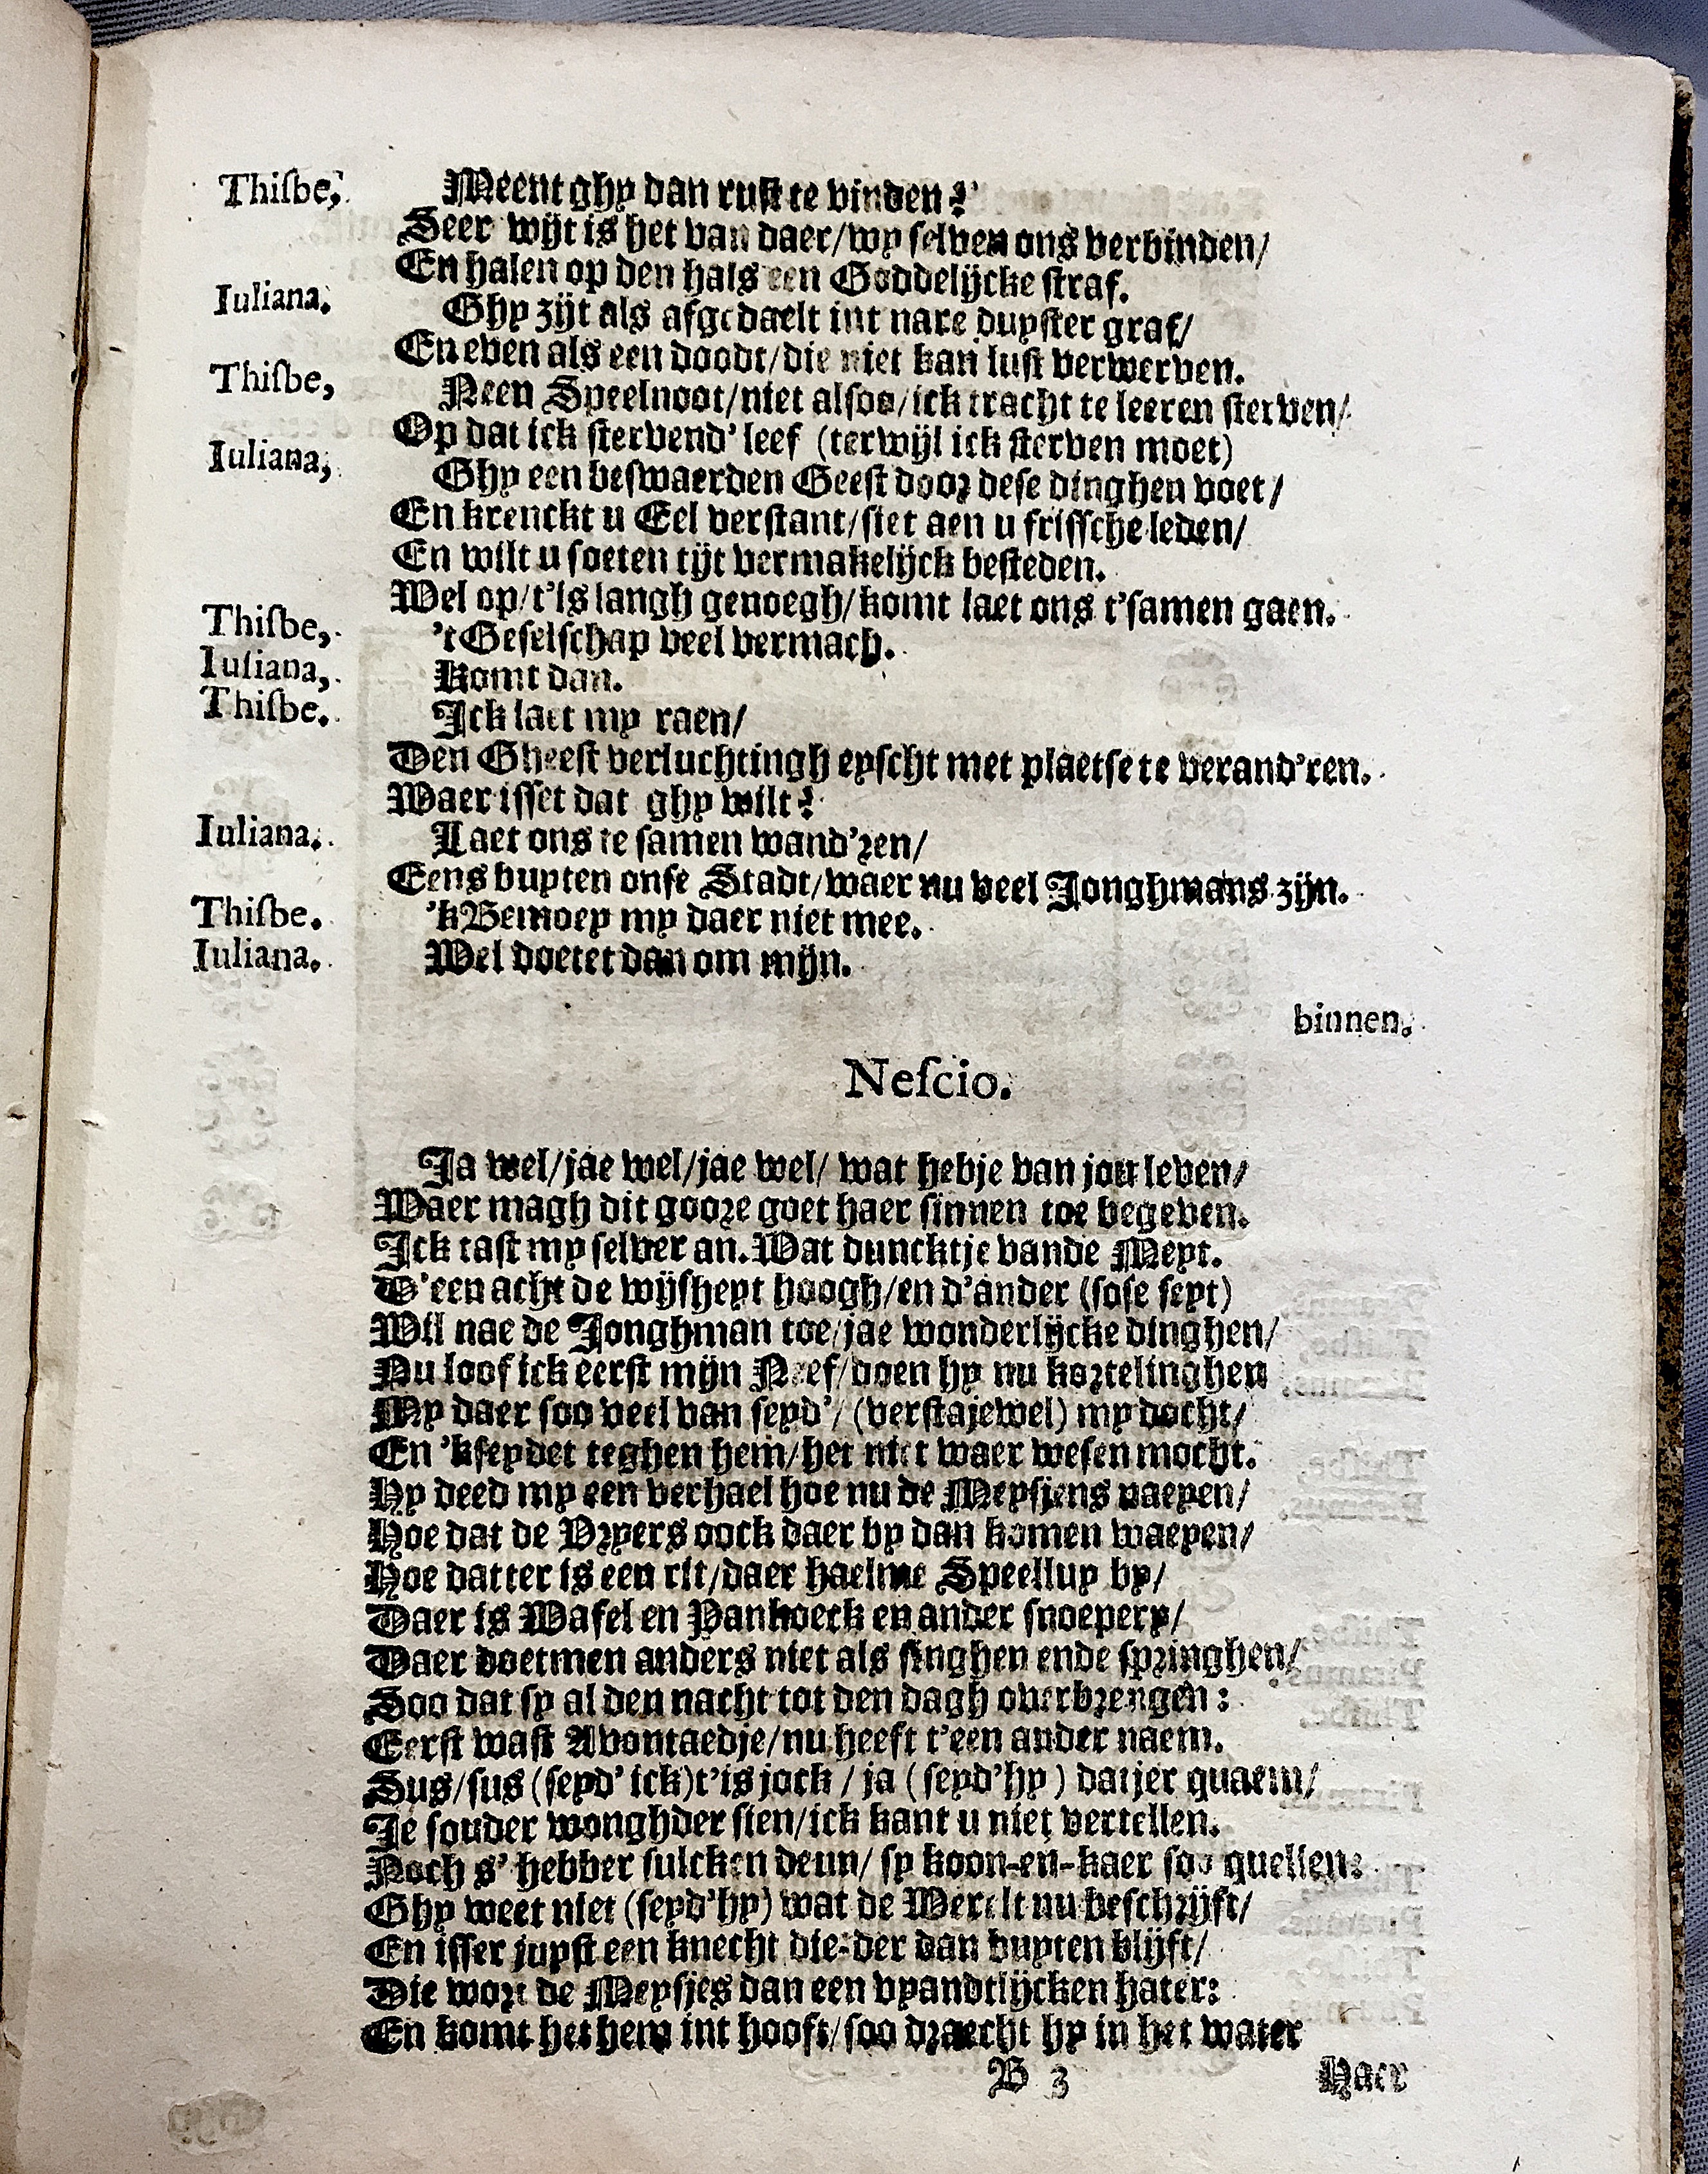 Thiſbe, Meent ghy dan ruſt te vinden?
Seer wijt is het van daer/wy ſelven ons verbinden/
En halen op den hals een Goddelijcke ſtraf.
Iuliana. Ghy zijt als afgedaelt int nare duyſter graf/
En even als een doodt/die niet kan luſt verwerven.
Thiſbe, Neen Speelnoot/niet alſoo/ick tracht te leeren ſterven/
Op dat ick ſtervend' leef (terwijl ick ſterven moet)
Iuliana, Ghy een beſwaerden Geeſt door deſe dinghen voet/
En krenckt u Eel verſtant/ſiet aen u friſſche leden/
En wilt u ſoeten tijt vermakelijck beſteden.
Wel op/t'is langh genoegh/komt laet ons t'ſamen gaen.
Thiſbe, 't Geſelſchap veel vermach.
Iuliana, Komt dan.
Thiſbe. Ick laet my raen/
Den Gheeſt verluchtingh eyſcht met plaetſe te verand'ren.
Waer iſſet dat ghy wilt?
Iuliana. Laet ons te ſamen wand'ren/
Eens buyten onſe Stadt/waer nu veel Jonghmans zijn.
Thiſbe. 'k Bemoey my daer niet mee.
Iuliana. Wel doetet dan om mijn.
binnen.
Neſcio.
Ja wel/jae wel/jae wel/ wat hebje van jou leven/
Waer magh dit goore goet haer ſinnen toe begeven.
Ick taſt my ſelver an. Wat duncktje vande Meyt.
D'een acht de wijſheyt hoogh/en d'ander (ſoſe ſeyt)
Wil nae de Jonghman toe/jae wonderlijcke dinghen/
Nu loof ick eerſt mijn Neef/doen hy nu kortelinghen
My daer ſoo veel van ſeyd'/ (verſtajewel) my docht/
En 'kſeydet teghen hem/het niet waer weſen mocht.
Hy deed my een verhael hoe nu de Meyſjens naeyen/
Hoe dat de Vryers oock daer by dan komen waeyen/
Hoe datter is een rit/daer haelme Speelluy by/
Daer is Wafel en Panhoeck en ander ſnoepery/
Daer doetmen anders niet als ſinghen ende ſpringhen/
Soo dat ſy al den nacht tot den dagh overbrengen:
Eerſt waſt Avontaedje/nu heeft t'een ander naem.
Sus/ſus (ſeyd' ick)t'is jock / ja (ſeyd'hy) datjer quaem/
Je ſouder wonghder ſien/ick kant u niet vertellen.
Noch s' hebber ſulcken deun/ ſy koon-en-kaer ſoo quellen:
Ghy weet niet (ſeyd'hy) wat de Werelt nu beſchrijft/
En iſſer juyſt een knecht die-der dan buyten blijft/
Die wort de Meyſjes dan een vyandtlijcken hater:
En komt het hem int hooft/ſoo draecht hy in het water
B 3 Haer